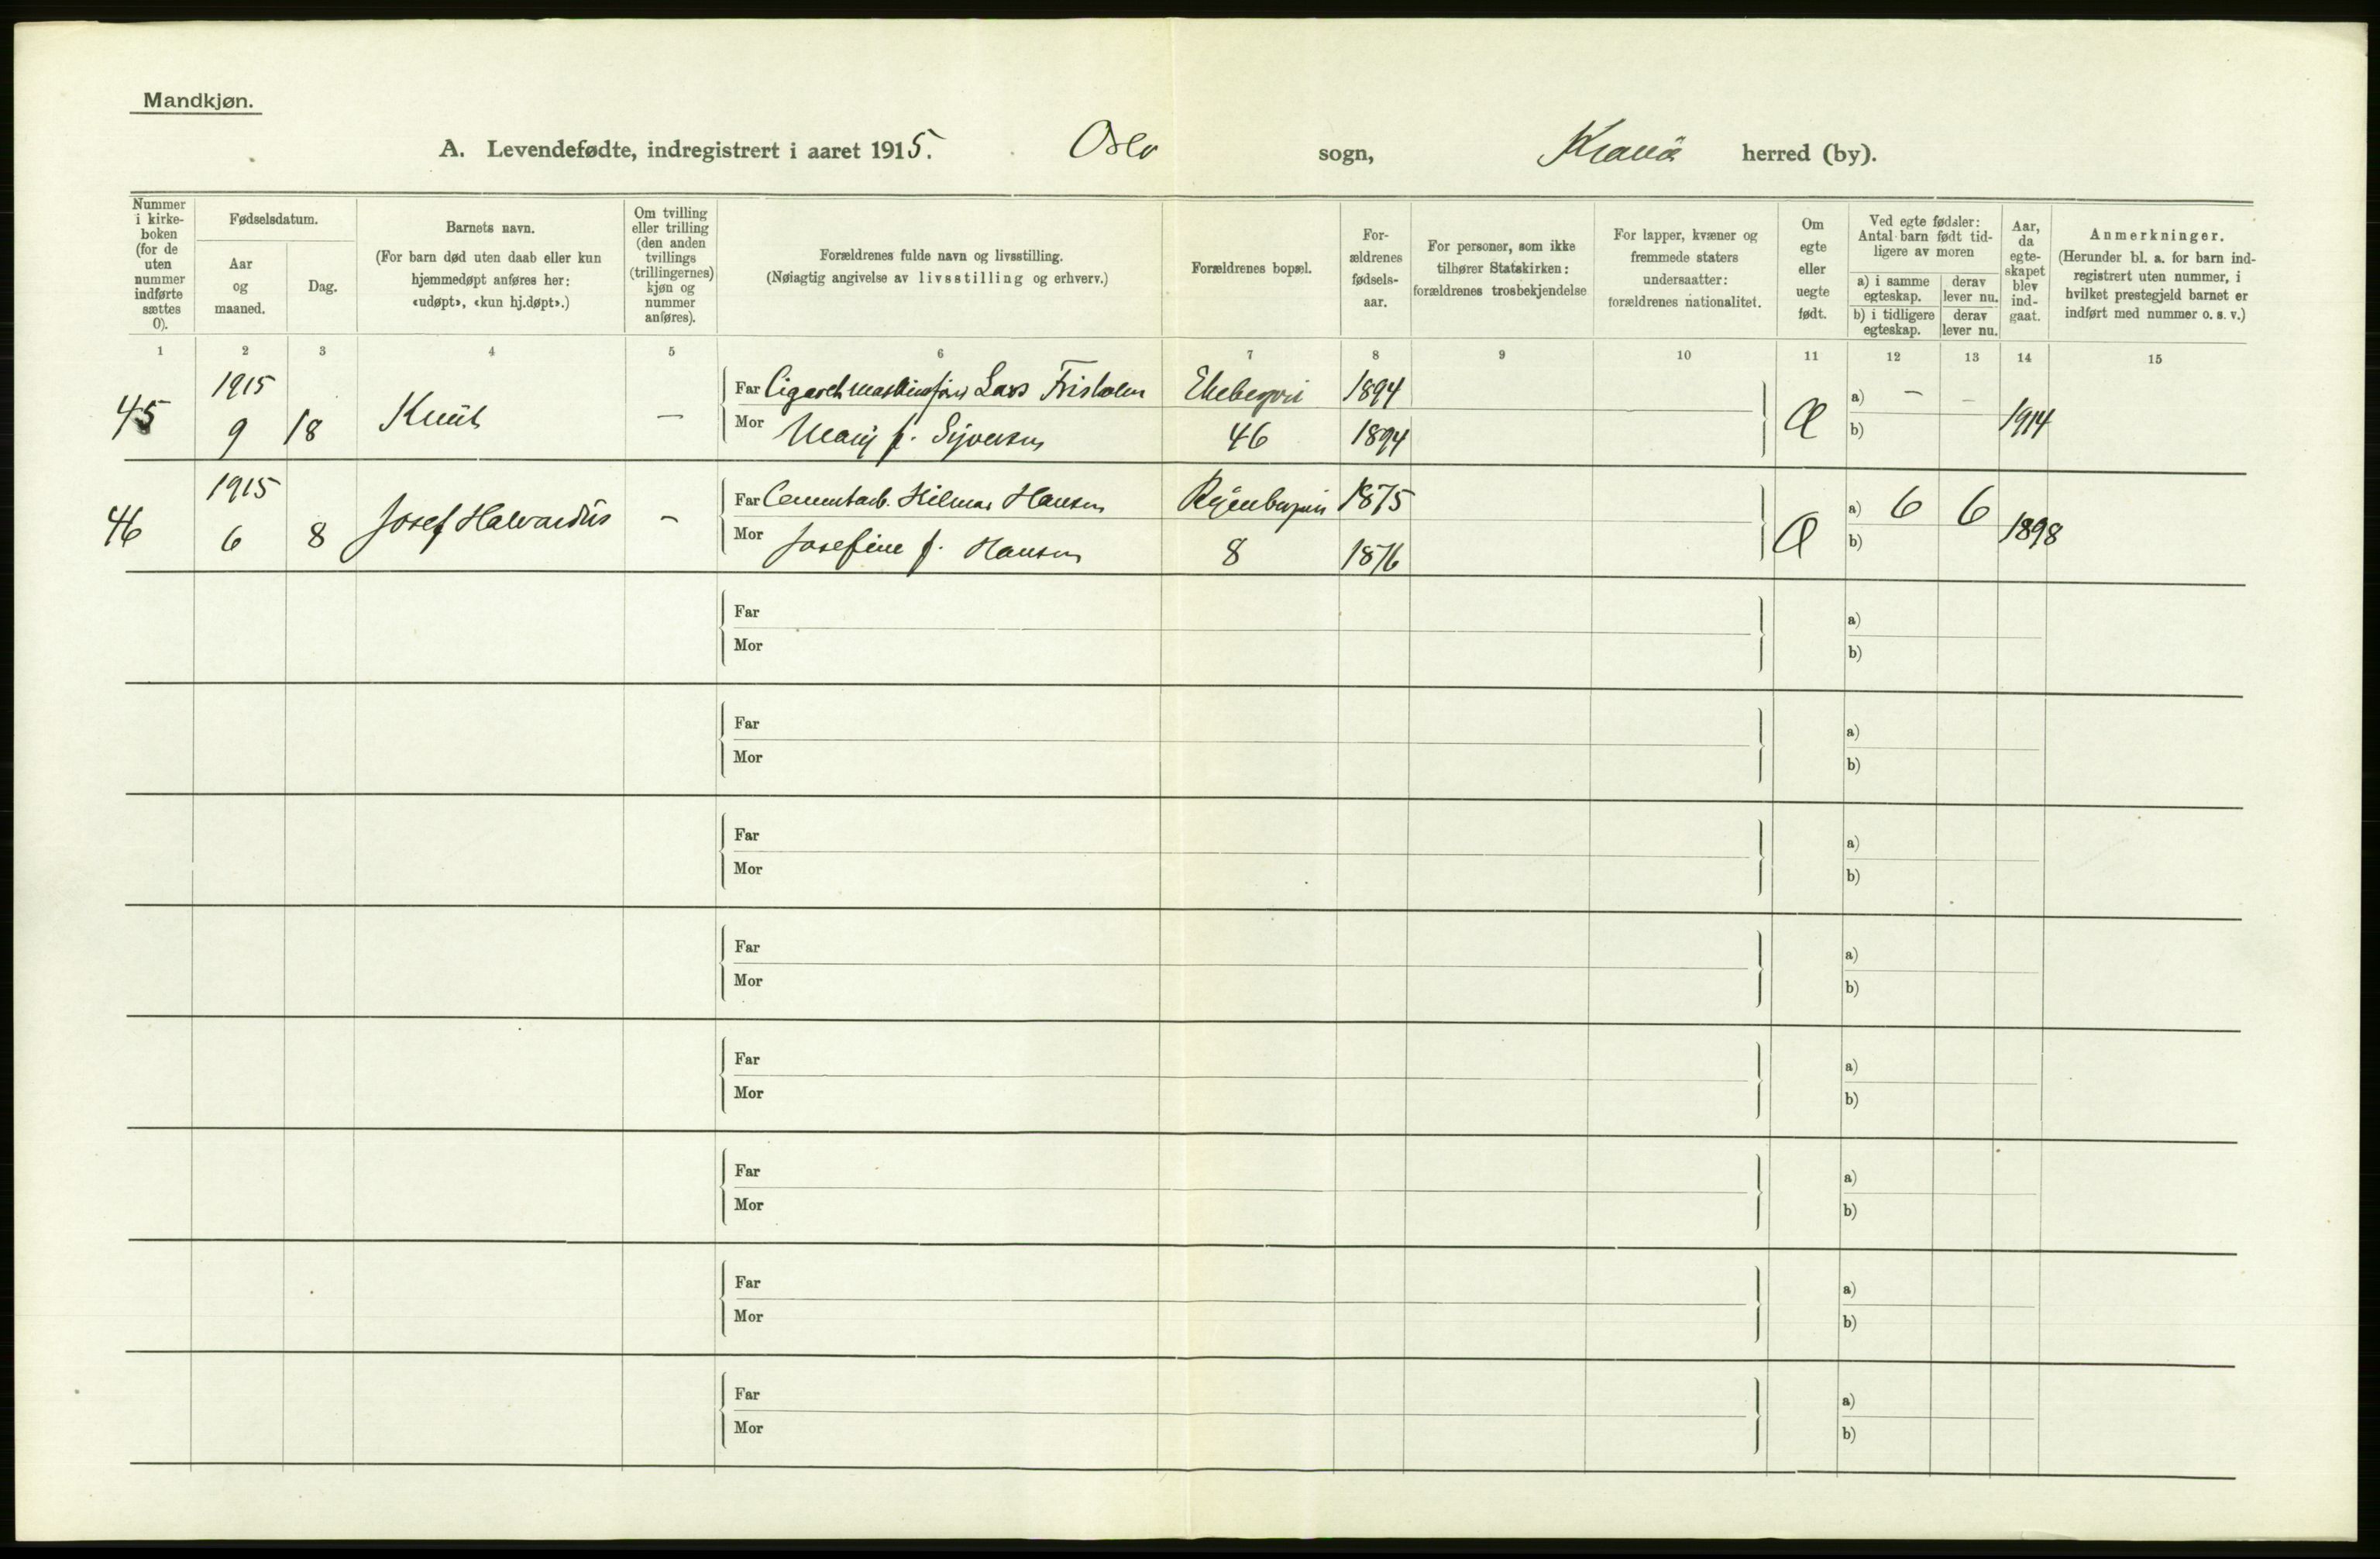 Mandkjøn.
A. Levendefødte, indregistrert i aaret 1915. Oslo sogn, Kr.ania herred (by).
Nummer i kirke-boken (for de uten nummer indførte sættes 0).
Fødselsdatum.
Aar og maaned.
Dag.
Barnets navn.
(For barn død uten daab eller kun hjemmedøpt anføres her: «udøpt», «kun hj.døpt».)
Om tvilling eller trilling (den anden tvillings (trillingernes) kjøn og nummer anføres).
Forældrenes fulde navn og livsstilling.
(Nøiagtig angivelse av livsstilling og erhverv.)
Forældrenes bopæl.
For-ældrenes fødsels-aar.
For personer, som ikke tilhører Statskirken: forældrenes trosbekjendelse
For lapper, kvæner og fremmede staters undersaatter: forældrenes nationalitet.
Om egte eller uegte født.
Ved egte fødsler: Antal barn født tid-ligere av moren
a) i samme egteskap. derav lever nu.
b) i tidligere egteskap. derav lever nu.
Aar, da egte-skapet blev ind-gaat.
Anmerkninger.
(Herunder bl. a. for barn ind-registrert uten nummer, i hvilket prestegjeld barnet er indført med nummer o. s. v.)
1 2 3 4 5 6 7 8 9 10 11 12 13 14 15
1915 Far Lars Frisholm 1894 a) – –
45 9 18 Knut – Mor Mary f. Syversen 46 1894 Æ b) 1914
1915 Far Cementarb. Hilmar Hansen 1875 a) 6 6
46 6 8 Josef Halvardus – Mor Josefine f. Hansen 8 1876 Æ b) 1898
Far a)
Mor b)
Far a)
Mor b)
Far a)
Mor b)
Far a)
Mor b)
Far a)
Mor b)
Far a)
Mor b)
Far a)
Mor b)
Far a)
Mor b)